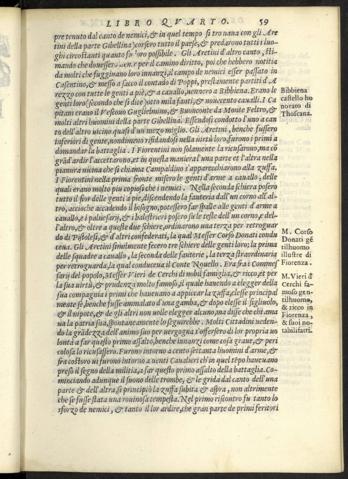 LIBRO QVARTO. 59
pre tenuto dal canto de nemici, & in quel tempo si trouano con gli Are
tini della parte Gibellina) corsero tutto il paese, & predarono tutti i luo-
ghi circostanti quanto fu loro possibile. Gli Aretini d'altro canto, sti-
mando che douessero venire per il camino diritto, poi che hebbero notitia
da molti che fuggiuano loro innanzi, il campo de nemici esser passato in
Casentino, & messo a sacco il contado di Poppi, prestamente partiti d'A
rezzo con tutte le genti a piè, & a cauallo, vennero a Bibbiena. Erano le
genti loro (secondo che si dice) otto mila fanti, & nouecento caualli. I Ca
pitani erano il Vescouo Guglielmino, & Buonconte da Monte Feltro, &
molti altri huomini della parte Gibellina. Essendosi condotto l'uno a can
to dell'altro uicino quasi d'un mezo miglio. Gli Aretini, benche fussero
inferiori di gente, nondimeno confidandosi nella uirtù loro, furono i primi a
domandar la battaglia. I Fiorentini non solamente la ricusarono, ma cō
grād'ardir l'accettarono, et in questa maniera l'una parte et l'altra nella
pianura uicina che si chiama Campaldino s'apparecchiarono alla zuffa.
I Fiorentini nella prima fronte missero le genti d'arme a cauallo, delle
quali erano molto piu copiosi che i nemici. Nella seconda schiera posero
tutto il fior delle genti a piè, distendendo la fanteria dall'un corno all'al-
tro, accioche accadendo il bisogno, potessero far spalla alle genti d'arme a
cauallo, & i palusarij, & i balestrieri posero su le teste dell'un corno, e del-
l'altro, & oltre a queste due schiere, ordinarono una terza per retroguar
do di Pistolesi, & d'altri confederati, la qual Messer Corso Donati condu
ceua. Gli Aretini similmente fecero tre schiere delle genti loro; la prima
delle squadre a cauallo, la seconda delle fanterie, la terza straordinaria
per retroguardo, la qual conduceua il Conte Nouello. Era fra i Commes
sarij del popolo, Messer Vieri de Cerchi di nobil famiglia, & ricco, et per
la sua uirtù, & prudenza molto famoso, il quale hauendo a elegger della
sua compagnia i primi che haueuano a appiccar la zuffa, elesse principal
mente se, benche fusse ammalato d'una gamba, & dopo elesse il figliuolo,
& il nipote, & de gli altri non uolle elegger alcuno, ma disse che chi ama
ua la patria sua, spontaneamente lo seguirebbe. Molti Cittadini ueden-
do la grādezza dell'animo suo per uergogna s'offersero di lor propria uo
lontà a far questo primo assalto, benche innanzi come cosa graue, & peri
colosa lo ricusassero. Furono intorno a cento settanta huomini d'arme, &
fra costoro ui furono intorno a uenti Caualieri ch'in quel tēpo haueuano
preso il segno della militia, a far questo primo assalto della battaglia. Co-
minciando adunque il suono delle trombe, & le grida dal canto dell'una
parte & dell'altra, si principiò la zuffa subita & aspra, non altrimente
che se fusse stata una rouinosa tempesta. Nel primo riscontro fu tanto lo
sforzo de nemici, & tanto il lor ardire, che gran parte de primi feritori
Bibbiena
castello ho
norato di
Thoscana.
M. Corso
Donati gē
tilhuomo
illustre di
Fiorenza.
M. Vieri d'
Cerchi fa-
moso gen-
tilhuomo,
& ricco in
Fiorenza,
& suoi no-
tabili fatti.